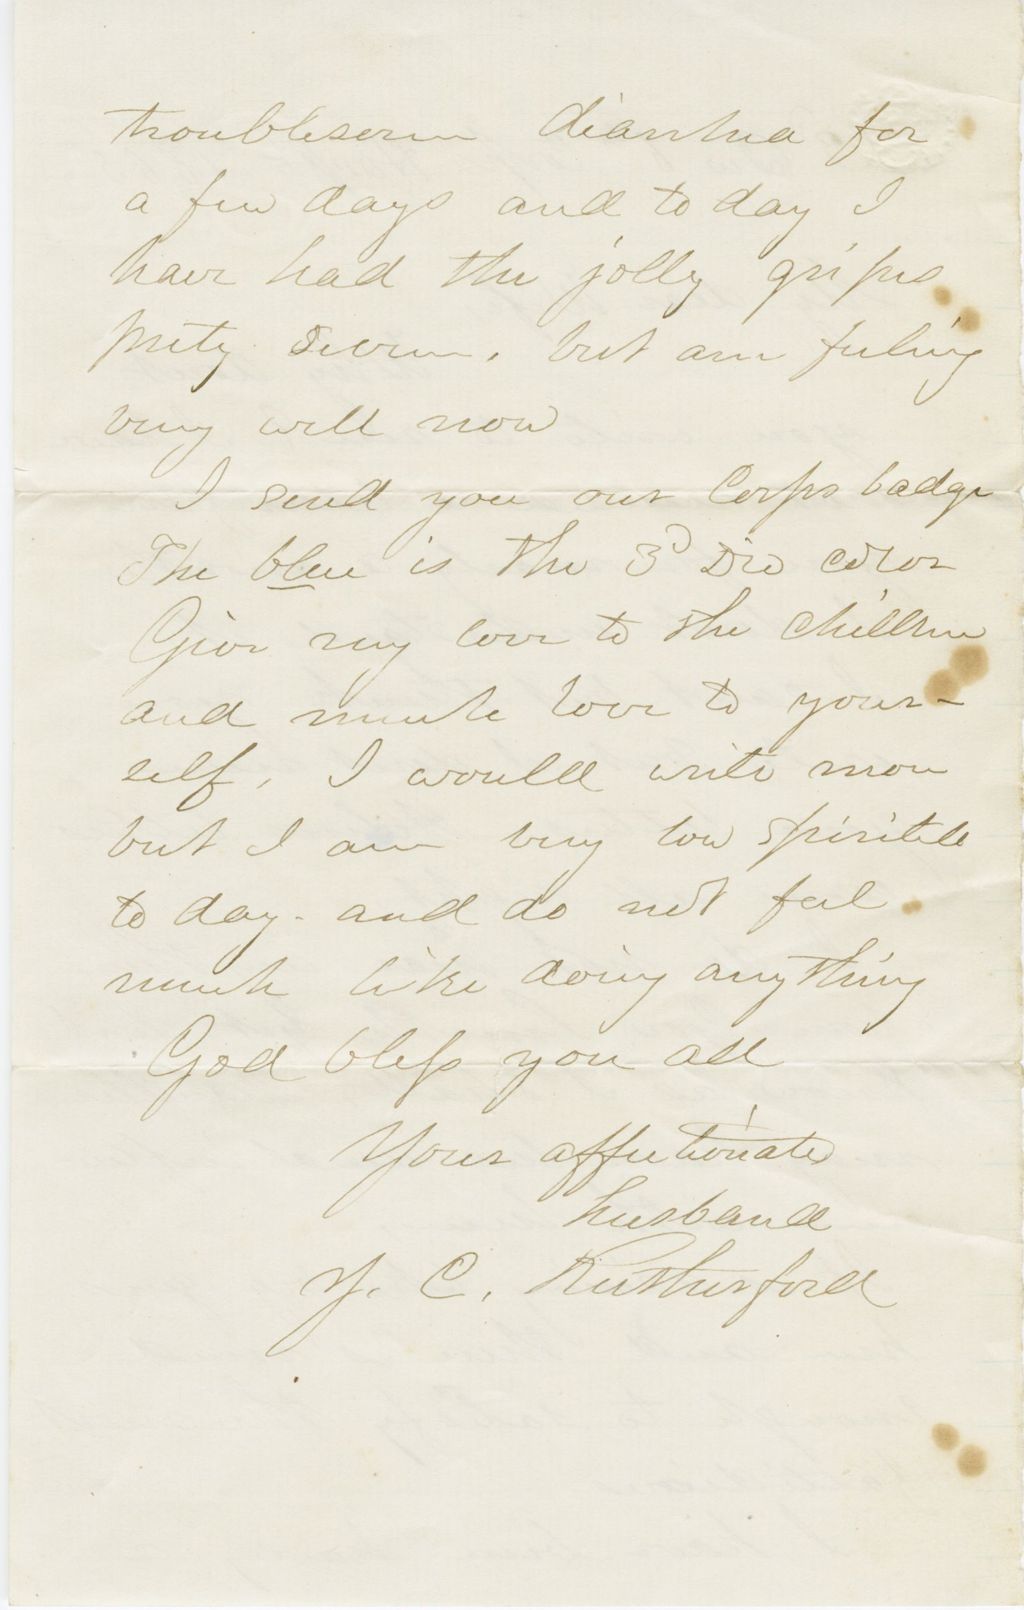 troublesome diarrhea for
a few days and to day I
have had the jolly gripes
prety severe, but am feeling
very well now
I send you our Corps badge
The blue is the 3d Div color
Give my love to the children
and much love to your-
self, I would write more
but I am very low spirited
to day - and do not feel
much like doing anything
God bless you all
Your affectionate
husband
J. C. Rutherford